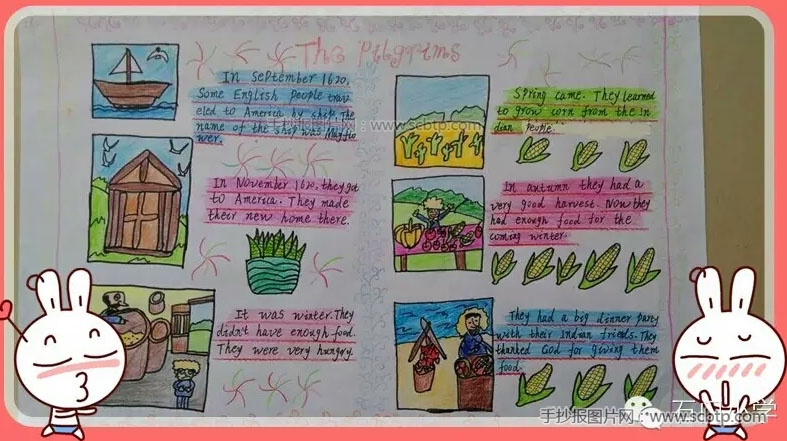 The Pilgrims
In September 1620,
Some English people trav
eled to America by ship. The
name of the ship was Mayflo
wer.
手抄报图片网：www.scbtp.com
In November 1620, they got
to America. They made
their new home there.
It was winter. They
didn't have enough food.
They were very hungry.
Spring came. They learned
to grow corn from the In
dian people.
In autumn they had a
very good harvest. Now they
had enough food for the
coming winter.
They had a big dinner party
with their Indian friends. They
thanked God for giving them
food.
手抄报图片网：www.scbtp.com